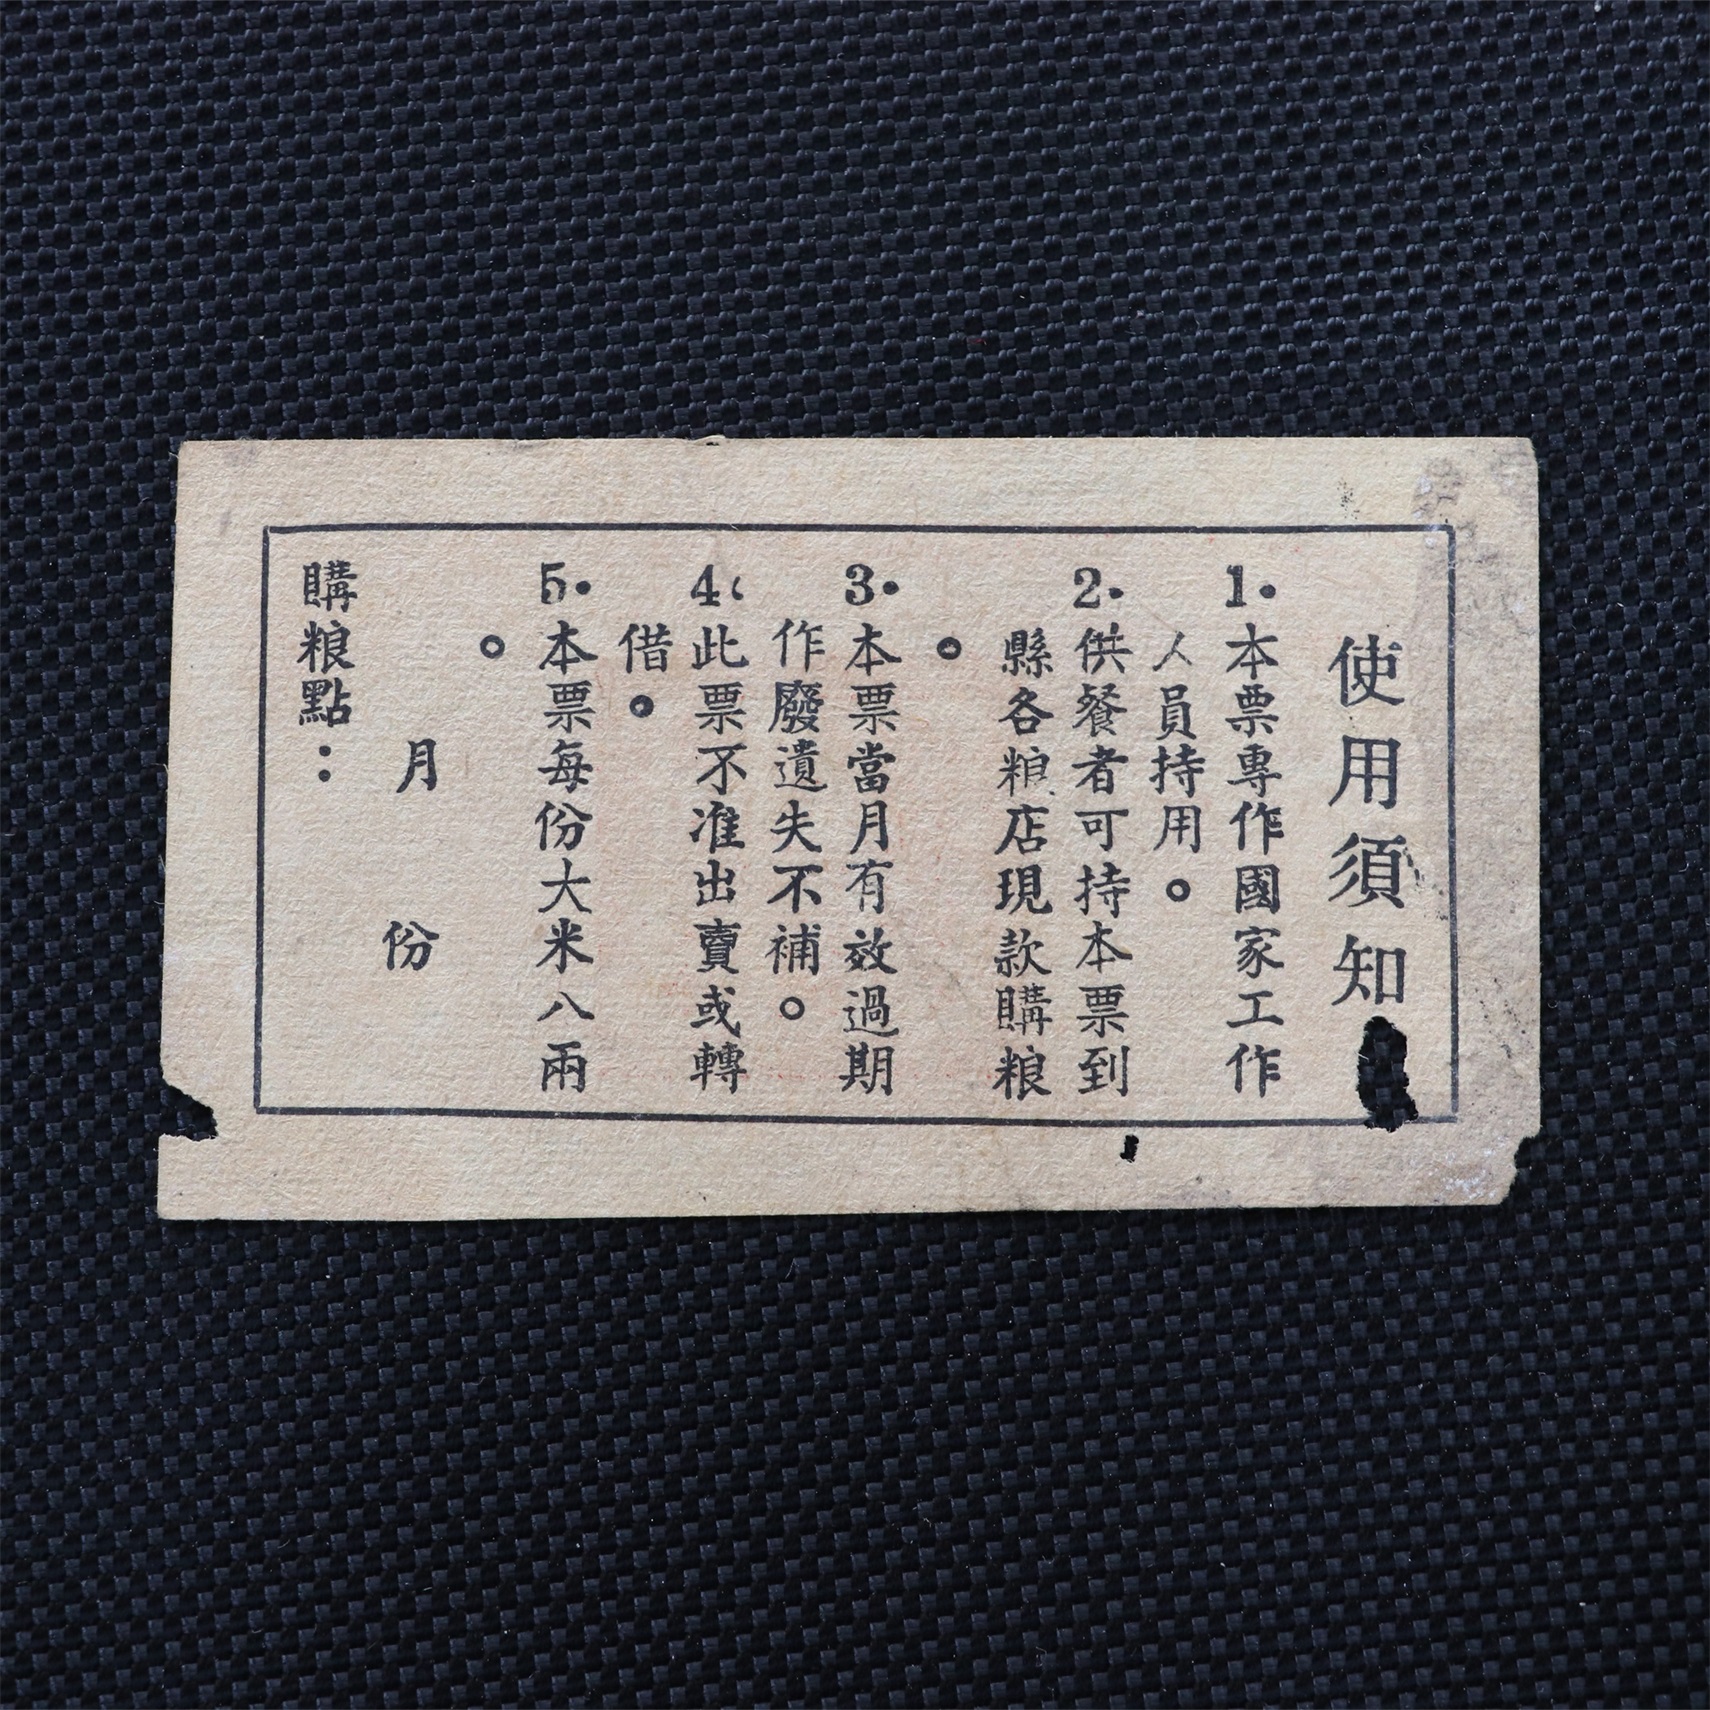 使用須知
1.本票專作國家工作
人員持用。
2.供餐者可持本票到
縣各粮店現款購粮
。
3.本票當月有效過期
作廢遺失不補。
4.此票不准出賣或轉
借。
5.本票每份大米八兩
。
月 份
購粮點：